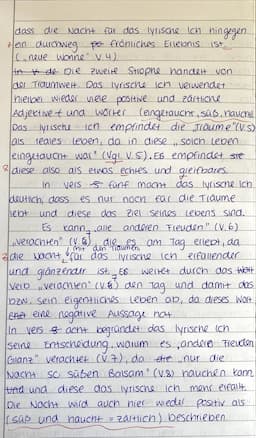 dass die Nacht für das lyrische Ich hingegen
ein durchweg fröhliches Erlebnis ist
(„neue Wonne" V.4)
Die zweite Strophe handelt von
der Traumwelt. Das lyrische Ich verwendet
hierbei wieder viele positive und zärtliche
Adjektive und Wörter (eingetaucht, süß, hauchen)
Das lyrische Ich empfindet die „Träume" (V.5)
als reales Leben, da in diese „solch Leben
eingetaucht war" (Vgl. V.5). Es empfindet
diese also als etwas echtes und greifbares.
In Vers fünf macht das lyrische Ich
deutlich, dass es nur noch für die Träume
lebt und diese das Ziel seines Lebens sind.
Es kann „alle anderen Freuden" (V.6)
„verachten" (V.6) die es am Tag erlebt, da
die Nacht mit den Träumen für das lyrische Ich erfüllender
und glänzender ist. Es wertet durch das
Verb „verachten" (V.6) den Tag und damit das
bzw. sein eigentliches Leben ab, da dieses Wort
eine negative Aussage hat.
In Vers acht begründet das lyrische Ich
seine Entscheidung, warum es „andere Freuden
Glanz" verachtet (V.7), da „nur die
Nacht so süßen Balsam" (V.8) hauchen kann
und diese das lyrische Ich mehr erfüllt.
Die Nacht wird auch hier wieder positiv als
(süß und haucht = zärtlich) beschrieben